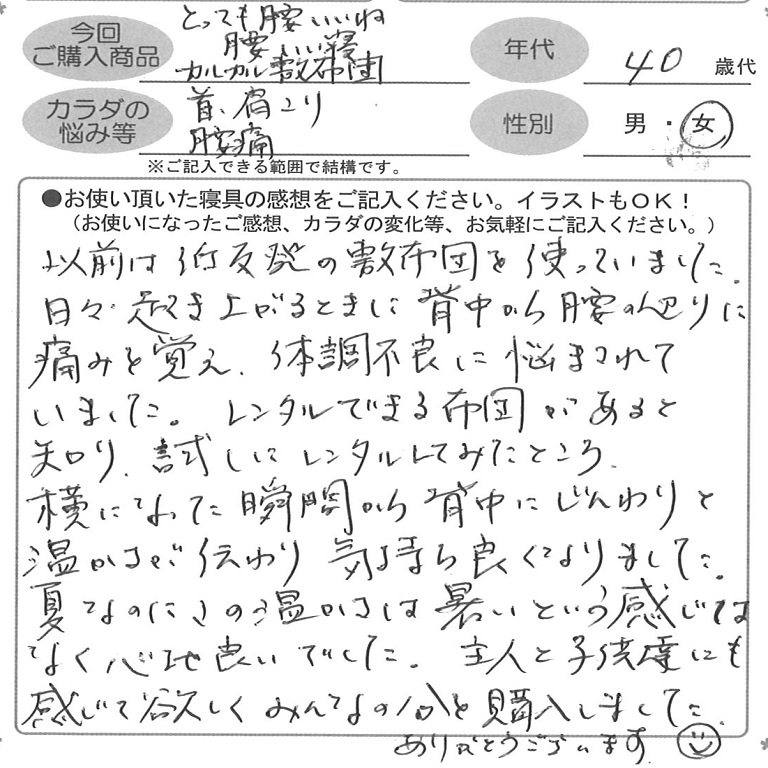 今回
ご購入商品
とっても腰いいね
腰いい寝
カルカル敷布団
年代
40 歳代
カラダの
悩み等
首、肩こり
腰痛
性別
男・女
※ご記入できる範囲で結構です。
●お使い頂いた寝具の感想をご記入ください。イラストもOK！
（お使いになったご感想、カラダの変化等、お気軽にご記入ください。）
以前は低反発の敷布団を使っていました。
日々起き上がるときに背中から腰の辺りに
痛みを覚え、体調不良に悩まされて
いました。レンタルできる布団があると
知り、試しにレンタルしてみたところ、
横になった瞬間から背中にじんわりと
温かさが伝わり気持ち良くなりました。
夏なのにこの温かさは暑いという感じでは
なく心地良いでした。主人と子供達にも
感じて欲しくみんなの分を購入しました。
ありがとうございます